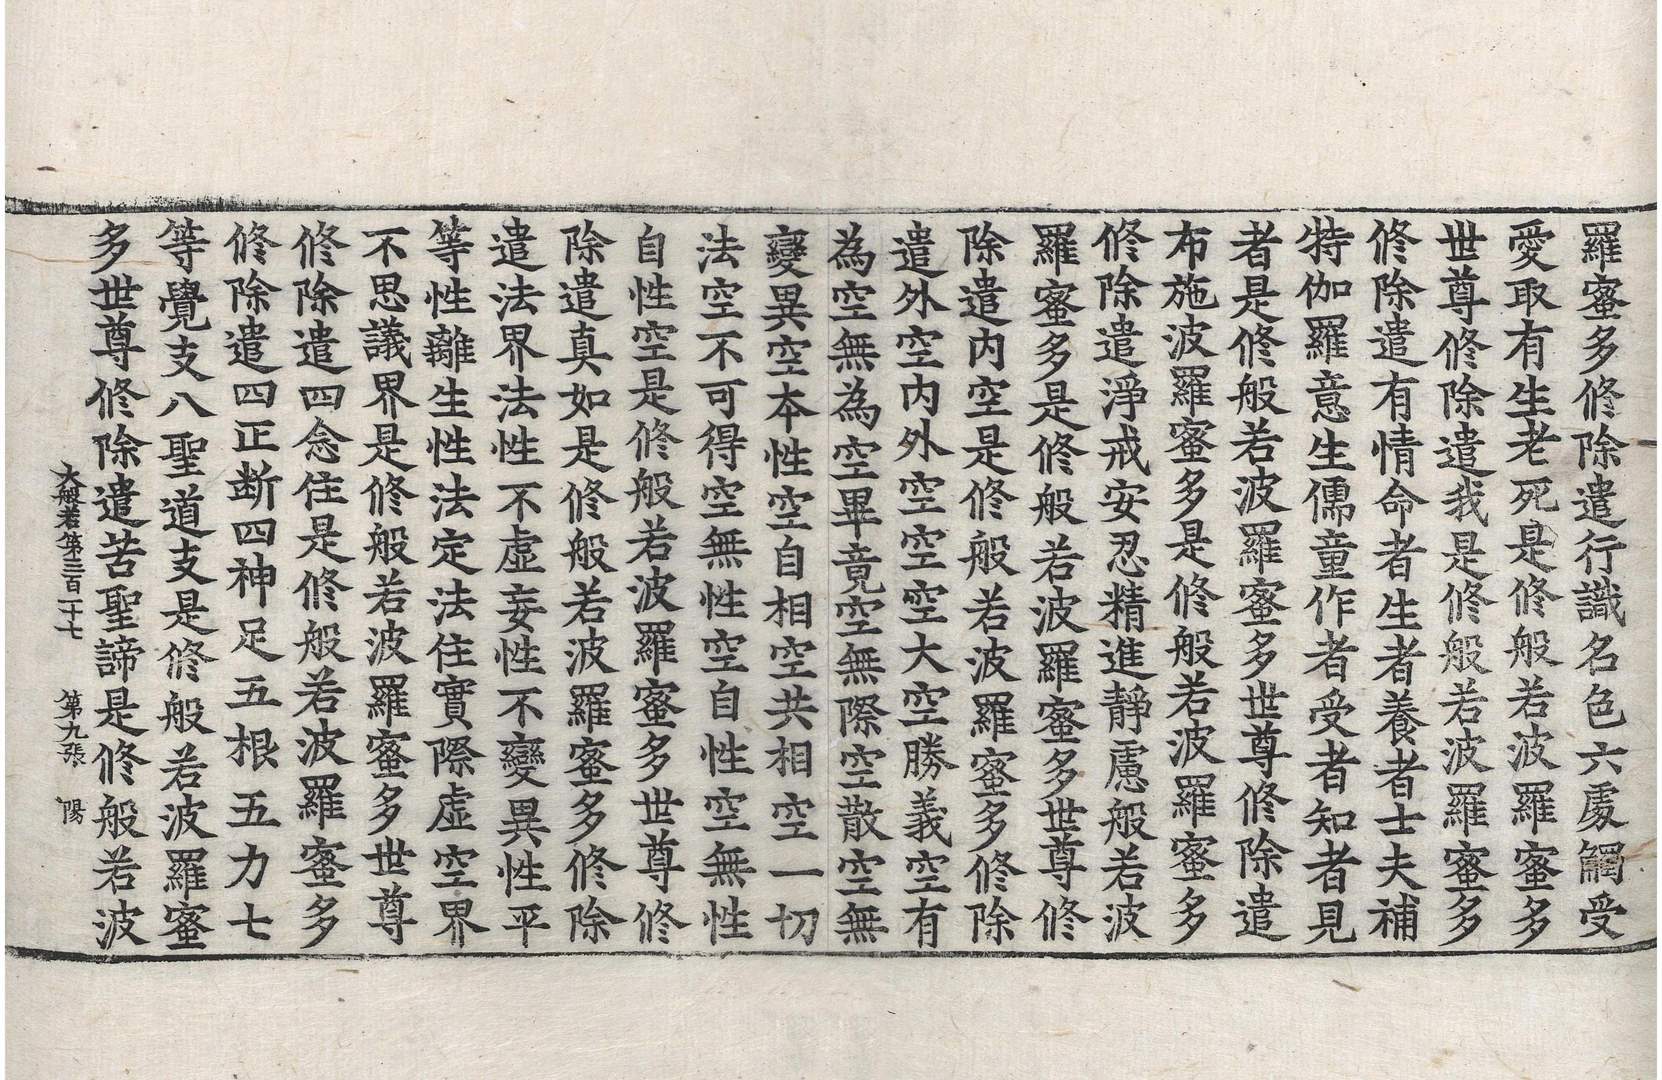 羅蜜多修除遣行識名色六處觸受
愛取有生老死是修般若波羅蜜多
世尊修除遣我是修般若波羅蜜多
修除遣有情命者生者養者士夫補
特伽羅意生儒童作者受者知者見
者是修般若波羅蜜多世尊修除遣
布施波羅蜜多是修般若波羅蜜多
修除遣淨戒安忍精進靜慮般若波
羅蜜多是修般若波羅蜜多世尊修
除遣内空是修般若波羅蜜多修除
遣外空内外空空空大空勝義空有
為空無為空畢竟空無際空散空無
變異空本性空自相空共相空一切
法空不可得空無性空自性空無性
自性空是修般若波羅蜜多世尊修
除遣真如是修般若波羅蜜多修除
遣法界法性不虛妄性不變異性平
等性離生性法定法住實際虛空界
不思議界是修般若波羅蜜多世尊
修除遣四念住是修般若波羅蜜多
修除遣四正断四神足五根五力七
等覺支八聖道支是修般若波羅蜜
多世尊修除遣苦聖諦是修般若波
大般若第三百二十七 第九張 陽